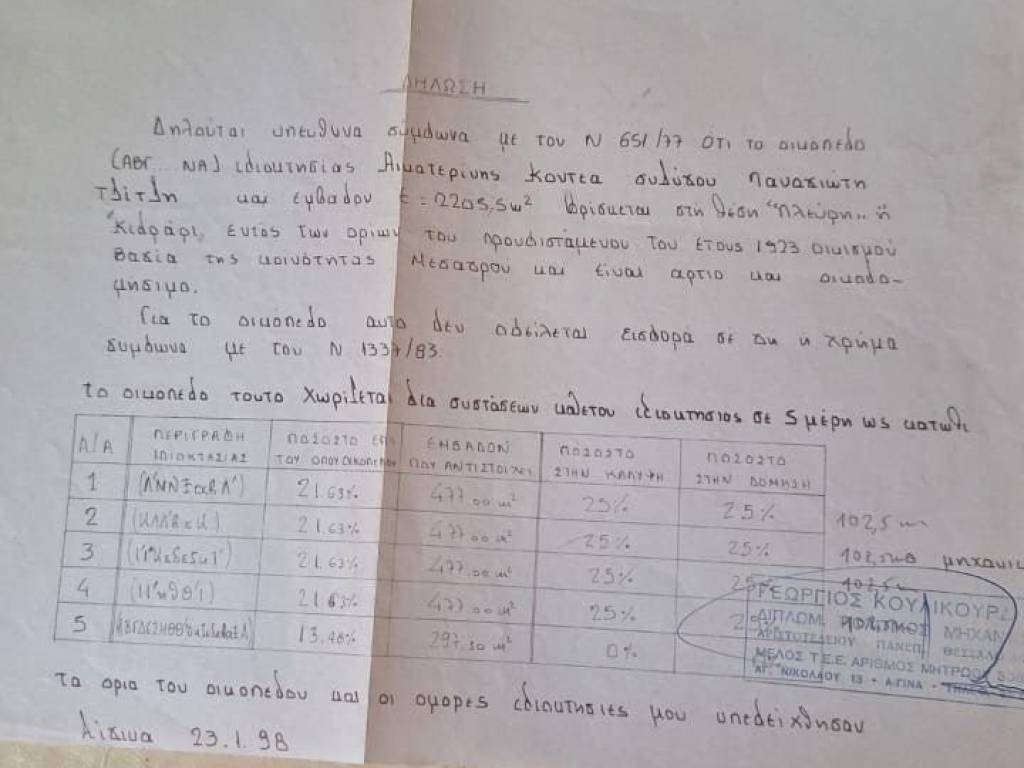 ΔΗΛΩΣΗ
Δηλούται υπεύθυνα σύμφωνα με τον Ν 651/77 ότι το οικόπεδο
(ΑΒΓ...ΝΑ) ιδιοκτησίας Αικατερίνης Κουτέα συζύγου Παναγιώτη
και εμβαδού Ε=2205,5m² βρίσκεται στη θέση "Πλεύρη" ή
Κιδράρι, εντός των ορίων του προυφιστάμενου του έτους 1923 οικισμού
Βαθία της κοινότητας Μεσαγρού και είναι άρτιο και οικοδο-
μήσιμο.
Για το οικόπεδο αυτό δεν οφείλεται εισφορά σε γη ή χρήμα
σύμφωνα με τον Ν 1337/83.
Το οικόπεδο τούτο χωρίζεται δια συστάσεων καθέτου ιδιοκτησίας σε 5 μέρη ως κάτωθι
Α/Α ΠΕΡΙΓΡΑΦΗ ΙΔΙΟΚΤΗΣΙΑΣ ΠΟΣΟΣΤΟ ΕΠΙ ΤΟΥ ΟΛΟΥ ΟΙΚΟΠΕΔΟΥ ΕΜΒΑΔΟΝ ΠΟΥ ΑΝΤΙΣΤΟΙΧΕΙ ΠΟΣΟΣΤΟ ΣΤΗΝ ΚΑΛΥΨΗ ΠΟΣΟΣΤΟ ΣΤΗΝ ΔΟΜΗΣΗ
1 21.63% 477.00 m² 25% 25% 102,5 m
2 21.63% 477.00 m² 25% 25%
3 21.63% 477.00 m² 25% 25 102,5m
4 21.63% 477.00 m² 25%
5 13.48% 297.50 m² 0%
ΓΕΩΡΓΙΟΣ ΚΟΥΛΙΚΟΥΡΔ
ΔΙΠΛΩΜ. ΠΟΛΙΤΙΚΟΣ ΜΗΧΑΝ
ΑΡΙΣΤΟΤΕΛΕΙΟΥ ΠΑΝΕΠ. ΘΕΣΣΑΛ
ΜΕΛΟΣ Τ.Ε.Ε. ΑΡΙΘΜΟΣ ΜΗΤΡΩΟΥ
ΑΓ. ΝΙΚΟΛΑΟΥ 13 - ΑΙΓΙΝΑ -
Τα όρια του οικοπέδου και οι όμορες ιδιοκτησίες μου υπεδείχθησαν
Αίγινα 23.1.98